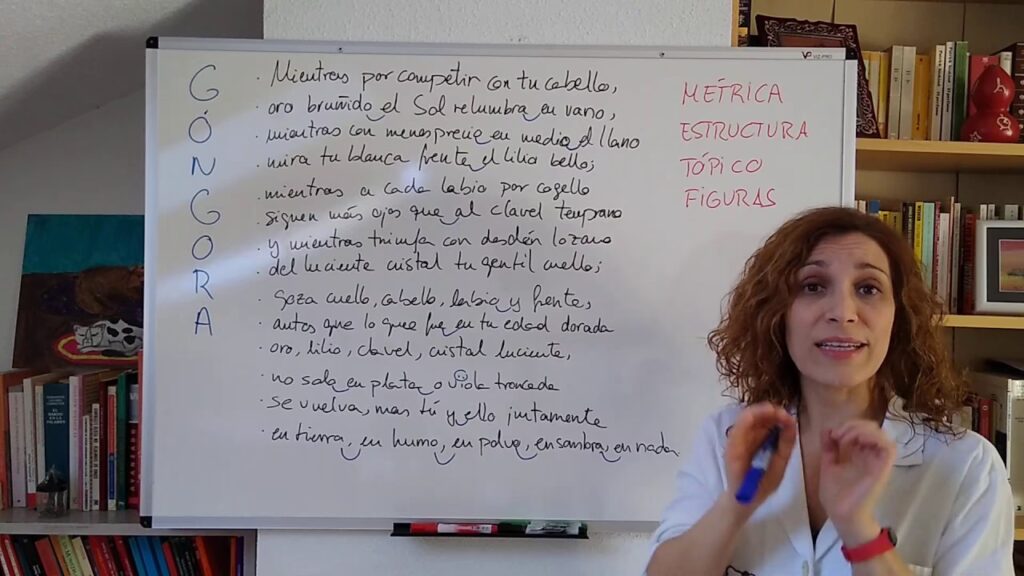 GÓNGORA
Mientras por competir con tu cabello,
oro bruñido el Sol relumbra en vano,
mientras con menosprecio en medio el llano
mira tu blanca frente el lilio bello;
mientras a cada labio por cogello
siguen más ojos que al clavel temprano
y mientras triunfa con desdén lozano
del luciente cristal tu gentil cuello;
goza cuello, cabello, labio y frente,
antes que lo que fue en tu edad dorada
oro, lilio, clavel, cristal luciente,
no solo en plata o viola troncada
se vuelva, mas tú y ello juntamente
en tierra, en humo, en polvo, en sombra, en nada.
MÉTRICA
ESTRUCTURA
TÓPICO
FIGURAS